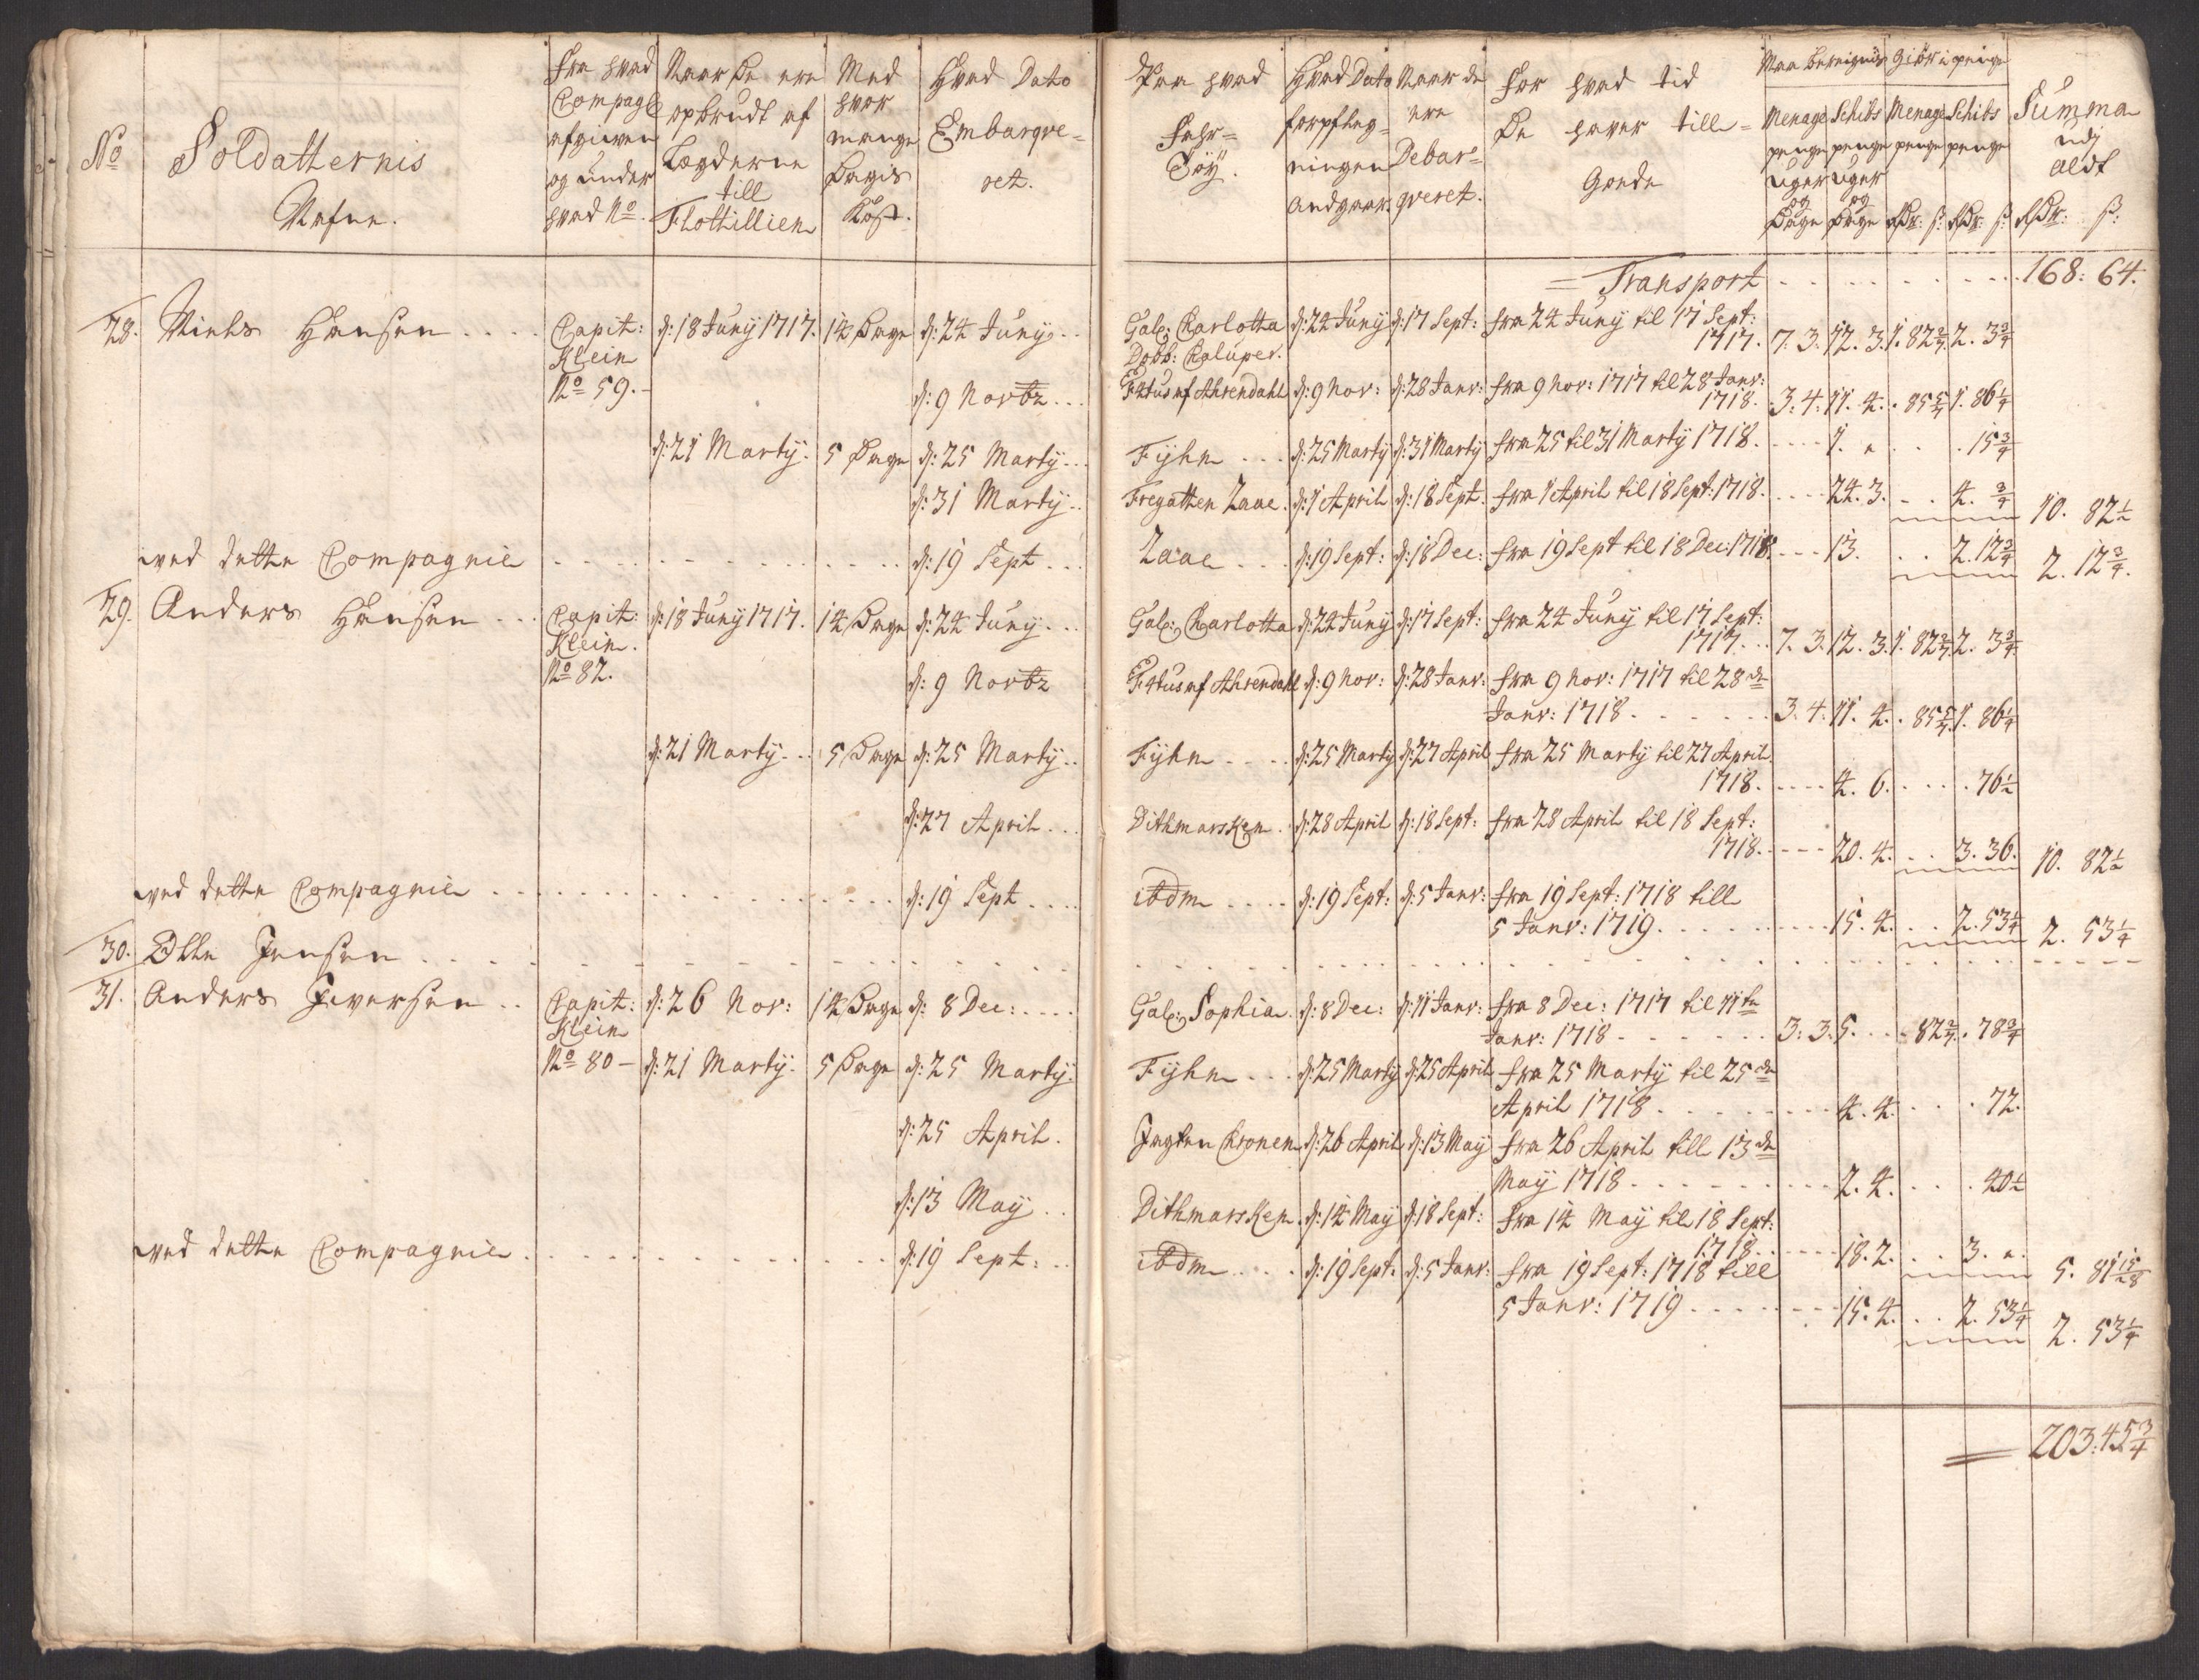 No
Soldatternis
Nafne.
Fra hvad
Compagl
afgiven
og under
hvad No.
Naar De ere
opbrudt af
Lægderne
till
Flottillien
Med
hvor
mange
Dagis
Kost.
Hvad Dato
Embarqve-
ret.
Paa hvad
Fahr-
Töÿ.
Hvad Dato
forpfleg-
ningen
Andgaar.
Naar de
ere
Debar-
qveret.
For hvad tid
De haver till-
Gode
Maa bereignis
Giör i penge
Menage penge uger og Dage
Schibs penge uger og Dage
Menage penge Rdr: ß:
Schibs penge Rdr: ß:
Summa
udj
aldt
Rdr: ß:
= Transport . . . . . . . 168: 64.
28. Niels Hansen . . . . Capit: d: 18 Junÿ 1717. 14 Dage d: 24 Junÿ . . Gal: Carlotta d: 24 Junÿ d: 17 Sept: fra 24 Junÿ til 17 Sept:
Klein Dobb: Chaluper. 1717. 7. 3. 12. 3. 1. 82 2/7. 2. 3 3/4
No 59. - d: 9 Novbr . . . Fortus af Ahrendahl d: 9 Nov: d: 28 Janv: fra 9 Nov: 1717 til 28 Janv:
1718. 3: 4: 11. 4. . 85 5/7 1. 86 1/4
d: 21 Martÿ. 5 Dage d: 25 Martÿ . . Fÿhn . . . d: 25 Martÿ d: 31 Martÿ fra 25 til 31 Martÿ 1718. . . . . 1. " . . . 15 3/4
d: 31 Martÿ . . Fregatten Zaae. d: 1 April d: 18 Sept. fra 1 April til 18 Sept: 1718. - - - - 24. 3. - . 4. 3/4 10. 82 1/2
ved dette Compagnie . . . . . . . . . . d: 19 Sept . . . Zaae . . . d: 19 Sept: d: 18 Dec: fra 19 Sept til 18 Dec: 1718. - - - 13. . . 2. 12 3/4 2. 12 3/4.
29. Anders Hansen . . . Capit: d: 18 Junÿ 1717. 14 Dage d: 24 Junÿ . . . Gal: Carlotta d: 24 Junÿ d: 17 Sept: fra 24 Junÿ til 17 Sept:
Klein. 1717. . . 7. 3. 12. 3. 1. 82 2/7. 2. 3 3/4
No 82. d: 9 Novbr Fortus af Ahrendahl d: 9 Nov: d: 28 Janv: fra 9 Nov: 1717 til 28 de
Janv: 1718. . . . . . . 3. 4. 11. 4. . 85 5/7 1. 86 1/4
d: 21 Martÿ - . . 5 Dage d: 25 Martÿ . . Fÿhn . . . . d: 25 Martÿ d: 27 April fra 25 Martÿ til 27 April
1718. - - - - 4. 6. . . . . 76 1/2
d: 27 April . . . Dithmarsken . d: 28 April d: 18 Sept: fra 28 April til 18 Sept:
1718. - - - - 20. 4. . . 3. 36. 10. 82 1/2
ved dette Compagnie . . . . . . . . . . . d: 19 Sept . . . . ibdm . . . . d: 19 Sept: d: 5 Janv: fra 19 Sept: 1718 till
5 Janv: 1719. . . . . . . . . 15. 4. . . 2. 53 1/4 2. 53 1/4
30. Olle Jensen . . . . . . . . . . . . . . . . . . . .
31. Anders Iversen . . Capit: d: 26 Nov: 14 Dage d: 8 Dec: . . . . Gal: Sophia. d: 8 Dec: d: 11 Janv: fra 8 Dec: 1717 til 11 te
Klein Janv: 1718 - . . . . . 3: 3. 5. . . . 82 2/7 . 78 3/4
No 80 - d: 21 Martÿ. 5 Dage d: 25 Martÿ. Fÿhn . . . d: 25 Martÿ d: 25 April fra 25 Martÿ til 25 de
April 1718. . . . . . . . 4. 4. . . . . 72.
d: 25 April. Jagten Cronen d: 26 April d: 13 Maÿ fra 26 April till 13 de
Maÿ 1718 - . . . . . . . . 2. 4. . . . . 40 1/2
d: 13 Maÿ . . Dithmarsken. d: 14 Maÿ d: 18 Sept: fra 14 Maÿ til 18 Sept:
1718. . - - - - 18. 2. . . 3. ". 5. 81 15/28
ved dette Compagnie . . . . . . . . . . . d: 19 Sept: . . ibdm . . . . d: 19 Sept: d: 5 Janv: fra 19 Sept: 1718 till
5 Janv: 1719 . . . . . . . . 15. 4. . . 2. 53 1/4 2. 53 1/4
= 203: 45 3/4